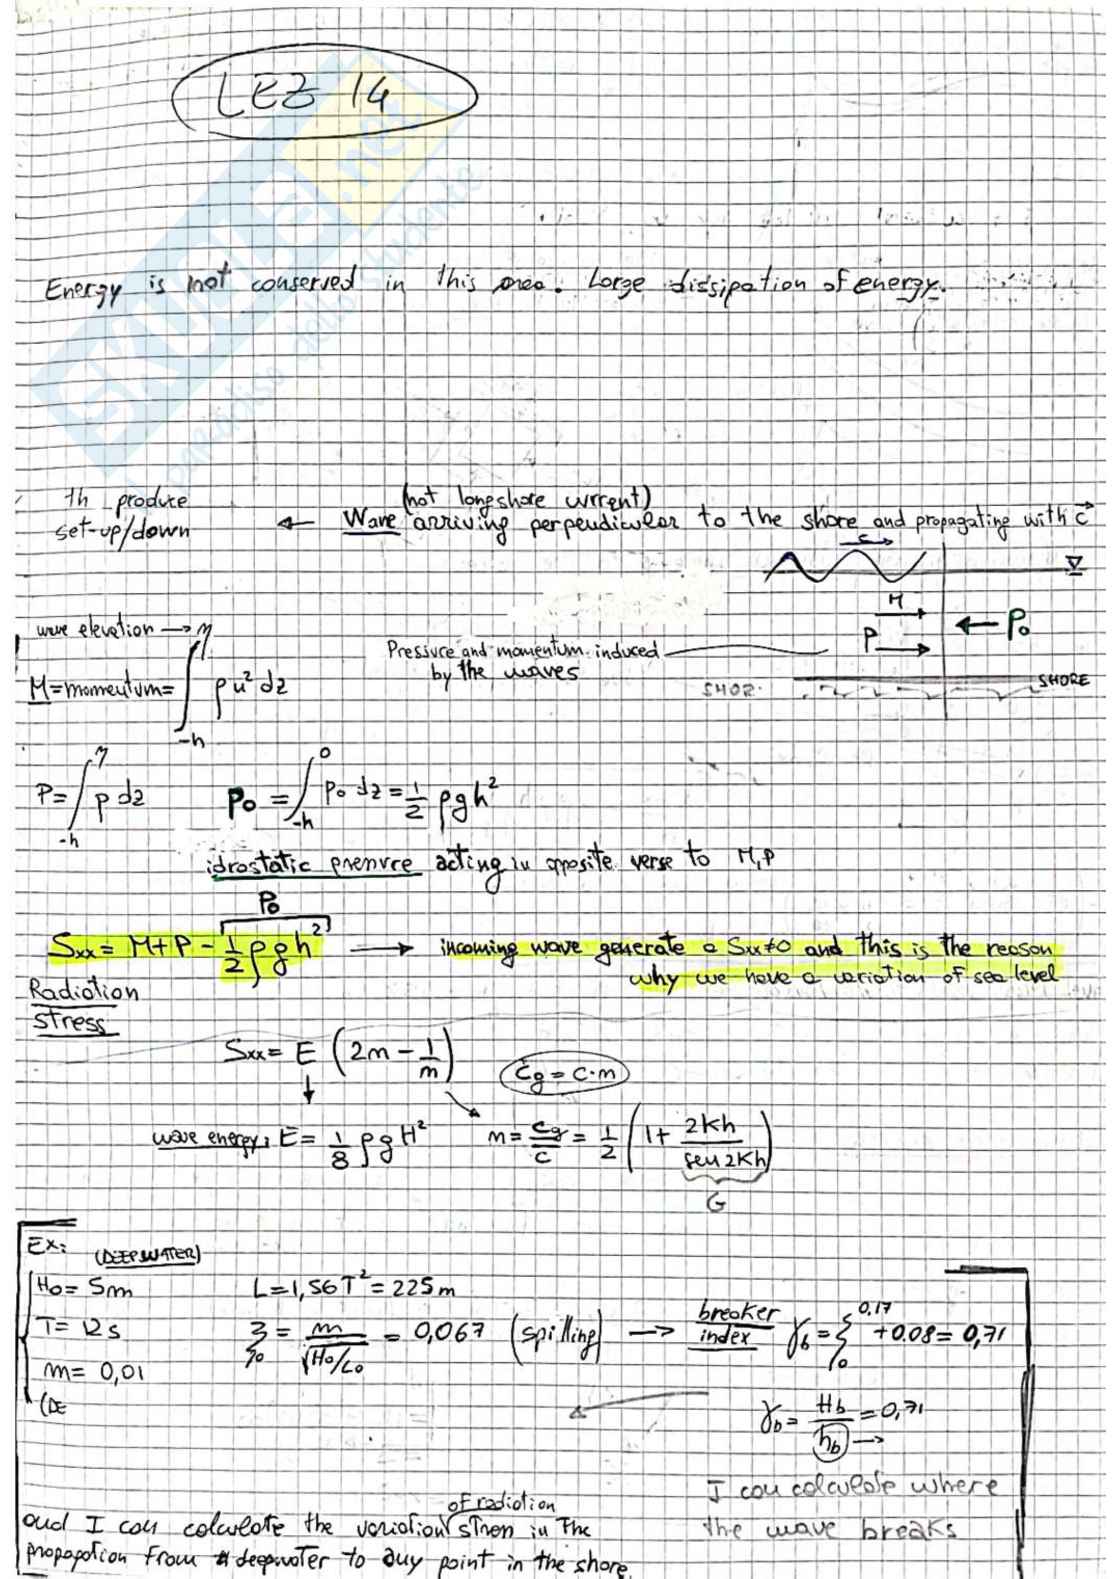 LEZ 14
SKUOLA.net
paradiso dello studente
Energy is not conserved in this area. Large dissipation of energy.
th produce
set-up/down
(not longshore current)
← Wave arriving perpendicular to the shore and propagating with c⃗
c
M
P
← P₀
SHOR.
SHORE
wave elevation → η
M=momentum= ∫₋ₕ^η ρu² dz
Pressure and momentum induced
by the waves
P= ∫₋ₕ^η p dz
P₀ = ∫₋ₕ^0 p₀ dz = 1/2 ρgh²
idrostatic pressure acting in opposite verse to M,P
P₀
Sxx = M+P - 1/2 ρgh² → incoming wave generate a Sxx≠0 and this is the reason
why we have a variation of sea level
Radiation
stress
Sxx = E (2m - 1/m)
cg = c·m
wave energy: E = 1/8 ρgH²
m = cg/c = 1/2 (1+ 2Kh/sen2Kh)
G
Ex: (DEEP WATER)
H₀= 5m
L=1,56T²=225m
T= 12s
ξ₀ = m/√H₀/L₀ = 0,067 (spilling) → breaker index γb = ξ₀^0,17 +0.08= 0,71
m= 0,01
(DE
γb = Hb/hb = 0,71
→
I can calculate where
the wave breaks
of radiation
and I can calculate the variation stress in the
propagation from deepwater to any point in the shore